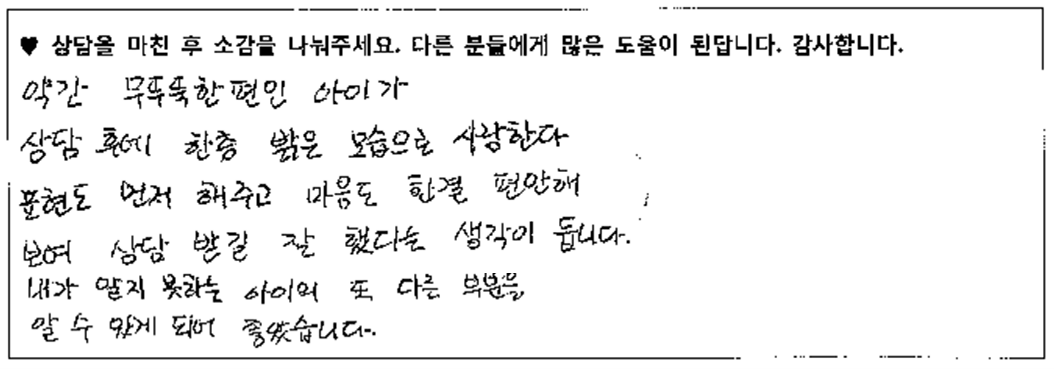 ♥ 상담을 마친 후 소감을 나눠주세요. 다른 분들에게 많은 도움이 된답니다. 감사합니다.
약간 무뚜뚝한 편인 아이가
상담 후에 한층 밝은 모습으로 사랑한다
표현도 먼저 해주고 마음도 한결 편안해
보여 상담 받길 잘 했다는 생각이 듭니다.
내가 알지 못하는 아이의 또 다른 부분을
알 수 있게 되어 좋았습니다.